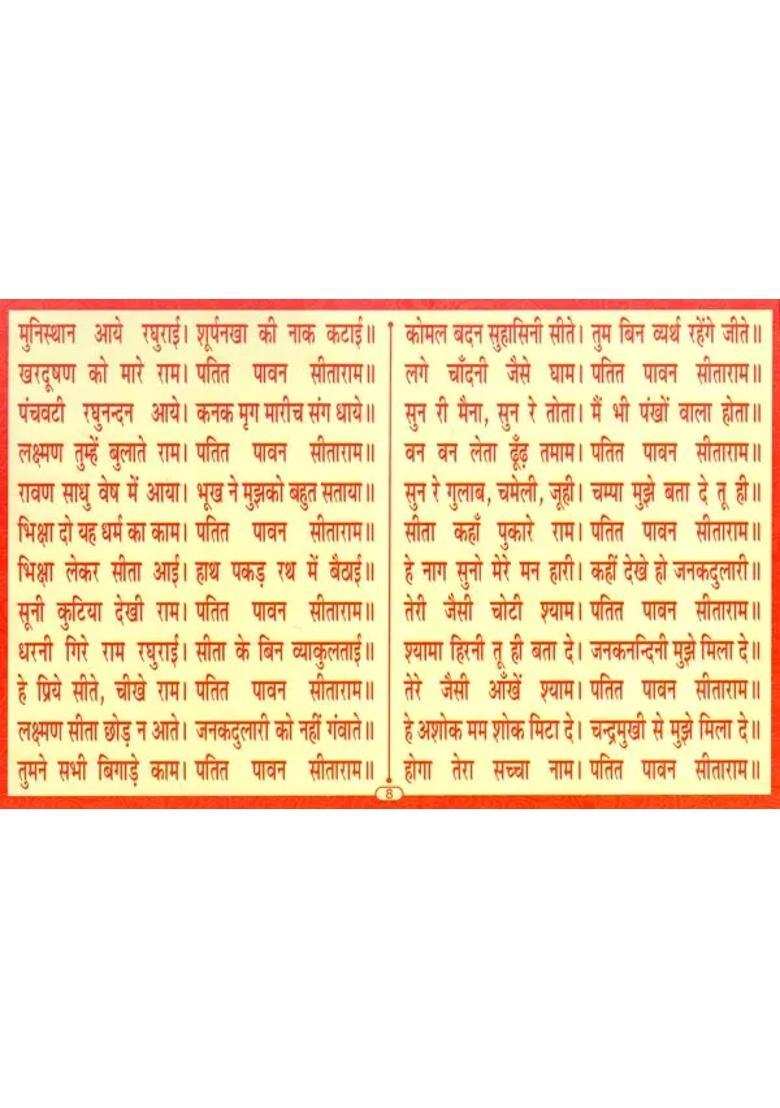 मुनिस्थान आये रघुराई। शूर्पनखा की नाक कटाई॥
खरदूषण को मारे राम। पतित पावन सीताराम॥
पंचवटी रघुनन्दन आये। कनक मृग मारीच संग धाये॥
लक्ष्मण तुम्हें बुलाते राम। पतित पावन सीताराम॥
रावण साधु वेष में आया। भूख ने मुझको बहुत सताया॥
भिक्षा दो यह धर्म का काम। पतित पावन सीताराम॥
भिक्षा लेकर सीता आई। हाथ पकड़ रथ में बैठाई॥
सूनी कुटिया देखी राम। पतित पावन सीताराम॥
धरनी गिरे राम रघुराई। सीता के बिन व्याकुलताई॥
हे प्रिये सीते, चीखे राम। पतित पावन सीताराम॥
लक्ष्मण सीता छोड़ न आते। जनकदुलारी को नहीं गंवाते॥
तुमने सभी बिगाड़े काम। पतित पावन सीताराम॥
कोमल बदन सुहासिनी सीते। तुम बिन व्यर्थ रहेंगे जीते॥
लगे चाँदनी जैसे घाम। पतित पावन सीताराम॥
सुन री मैना, सुन रे तोता। मैं भी पंखों वाला होता॥
वन वन लेता ढूँढ़ तमाम। पतित पावन सीताराम॥
सुन रे गुलाब, चमेली, जूही। चम्पा मुझे बता दे तू ही॥
सीता कहाँ पुकारे राम। पतित पावन सीताराम॥
हे नाग सुनो मेरे मन हारी। कहीं देखे हो जनकदुलारी॥
तेरी जैसी चोटी श्याम। पतित पावन सीताराम॥
श्यामा हिरनी तू ही बता दे। जनकनन्दिनी मुझे मिला दे॥
तेरे जैसी आँखें श्याम। पतित पावन सीताराम॥
हे अशोक मम शोक मिटा दे। चन्द्रमुखी से मुझे मिला दे॥
होगा तेरा सच्चा नाम। पतित पावन सीताराम॥
8